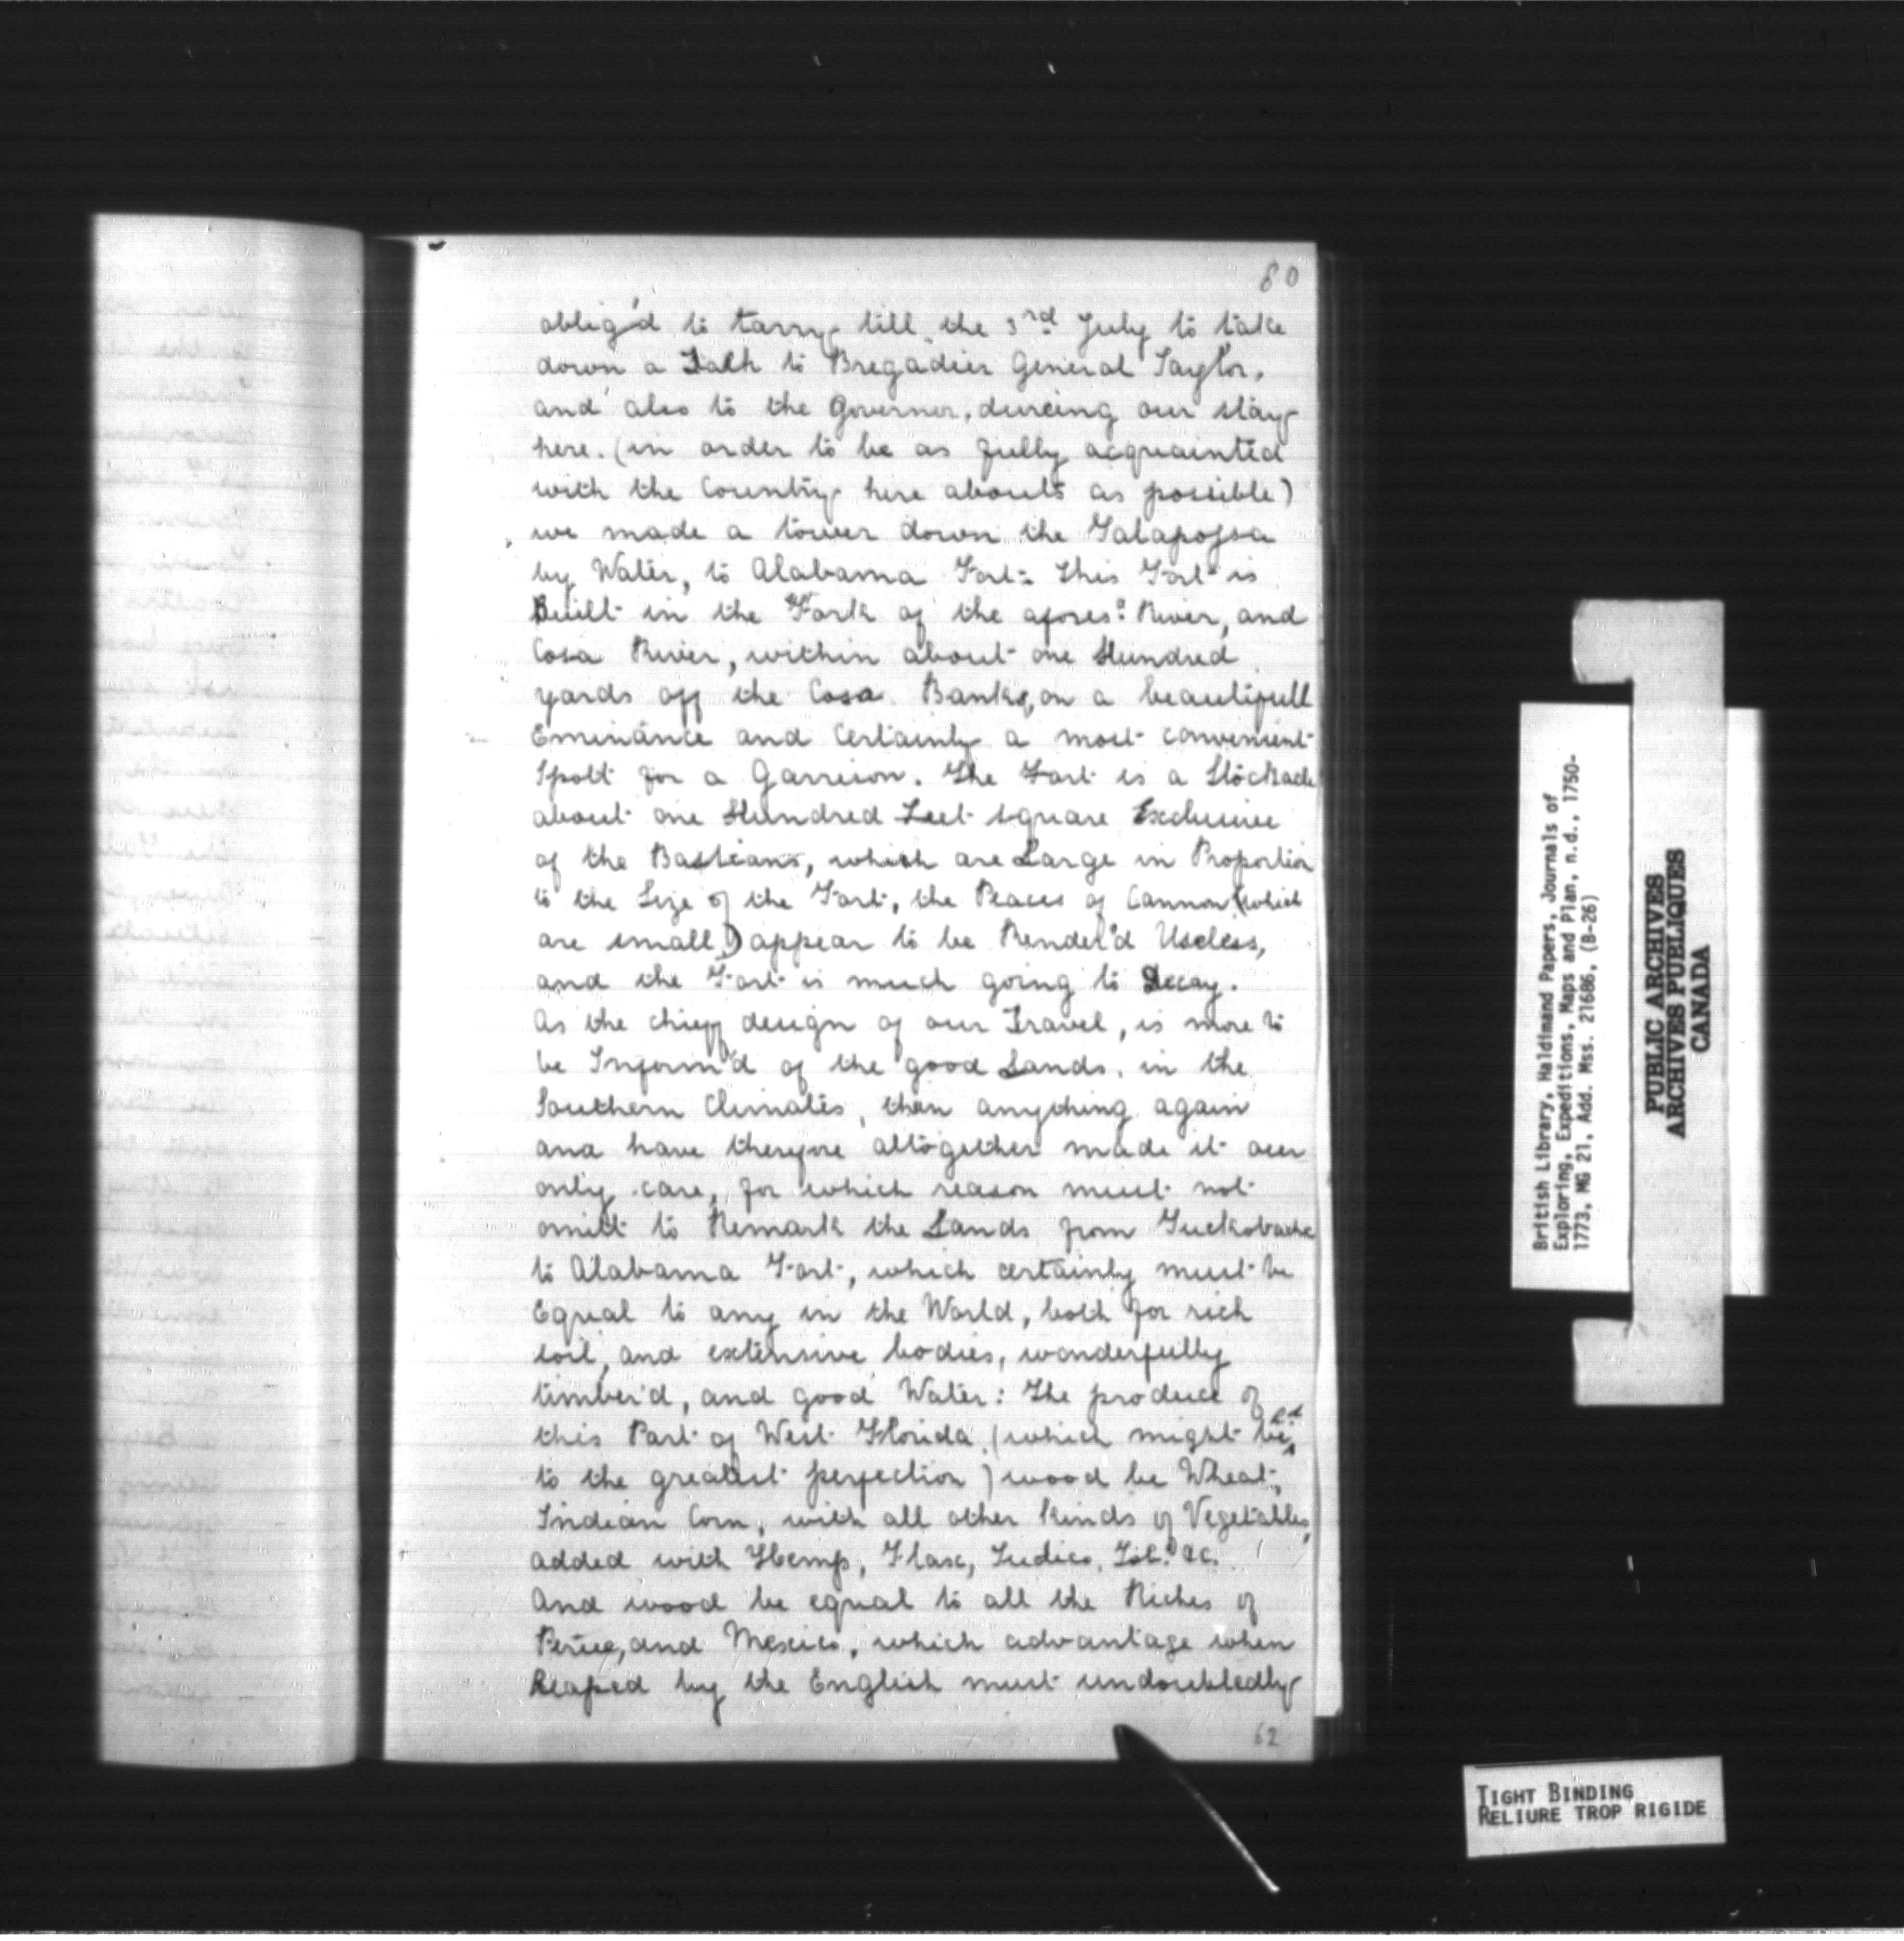 80
oblig'd to tarry till the 3rd July to take
down a Talk to Bregadier General Taylor,
and also to the Governor, dureing our stay
here. (in order to be as fully acquainted
with the Country here abouts as possible)
we made a tower down the Talapossa
by Water, to Alabama Fort: This Fort is
Built in the Fork of the afores.d River, and
Cosa River, within about one Hundred
yards off the Cosa Banks, on a beautifull
Eminance and Certainly a most convenient
Spott for a Garrison. The Fort is a Stockade
about one Hundred Feet square Exclusive
of the Bastians, which are Large in Proportion
to the Size of the Fort, the Peaces of Cannon (which
are small) appear to be Render'd Useless,
and the Fort is much going to Decay.
As the chieff design of our Travel, is more to
be Inform'd of the good Lands. in the
Southern Climates, then anything again
and have therefore altogether made it our
only care, for which reason must not
omitt to Remark the Lands from Tuckobache
to Alabama Fort, which certainly must be
Equal to any in the World, both for rich
soil, and extensive bodies, wonderfully
timber'd, and good Water: The produce of
this Part of West Florida (which might be
to the greatest perfection) wood be Wheat,
Indian Corn, with all other Kinds of Vegetables,
added with Hemp, Flax, Indico, &c.
And wood be equal to all the Riches of
Perue, and Mexico, which advantage when
Reaped by the English must undoubtedly
62
British Library, Haldimand Papers, Journals of
Exploring, Expeditions, Maps and Plan, n.d., 1750-
1773, MG 21, Add. Mss. 21686, (B-26)
PUBLIC ARCHIVES
ARCHIVES PUBLIQUES
CANADA
TIGHT BINDING
RELIURE TROP RIGIDE